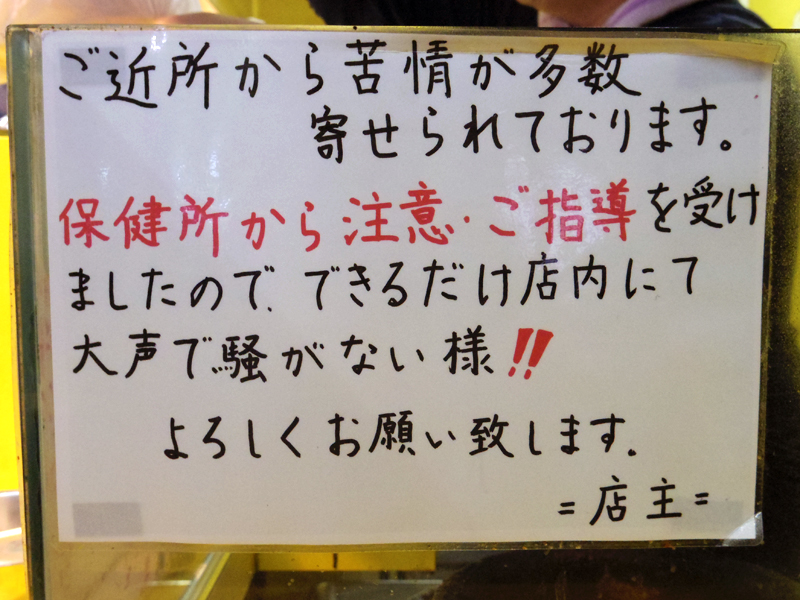 ご近所から苦情が多数
寄せられております。
保健所から注意・ご指導を受け
ましたので、できるだけ店内にて
大声で騒がない様!!
よろしくお願い致します.
=店主=